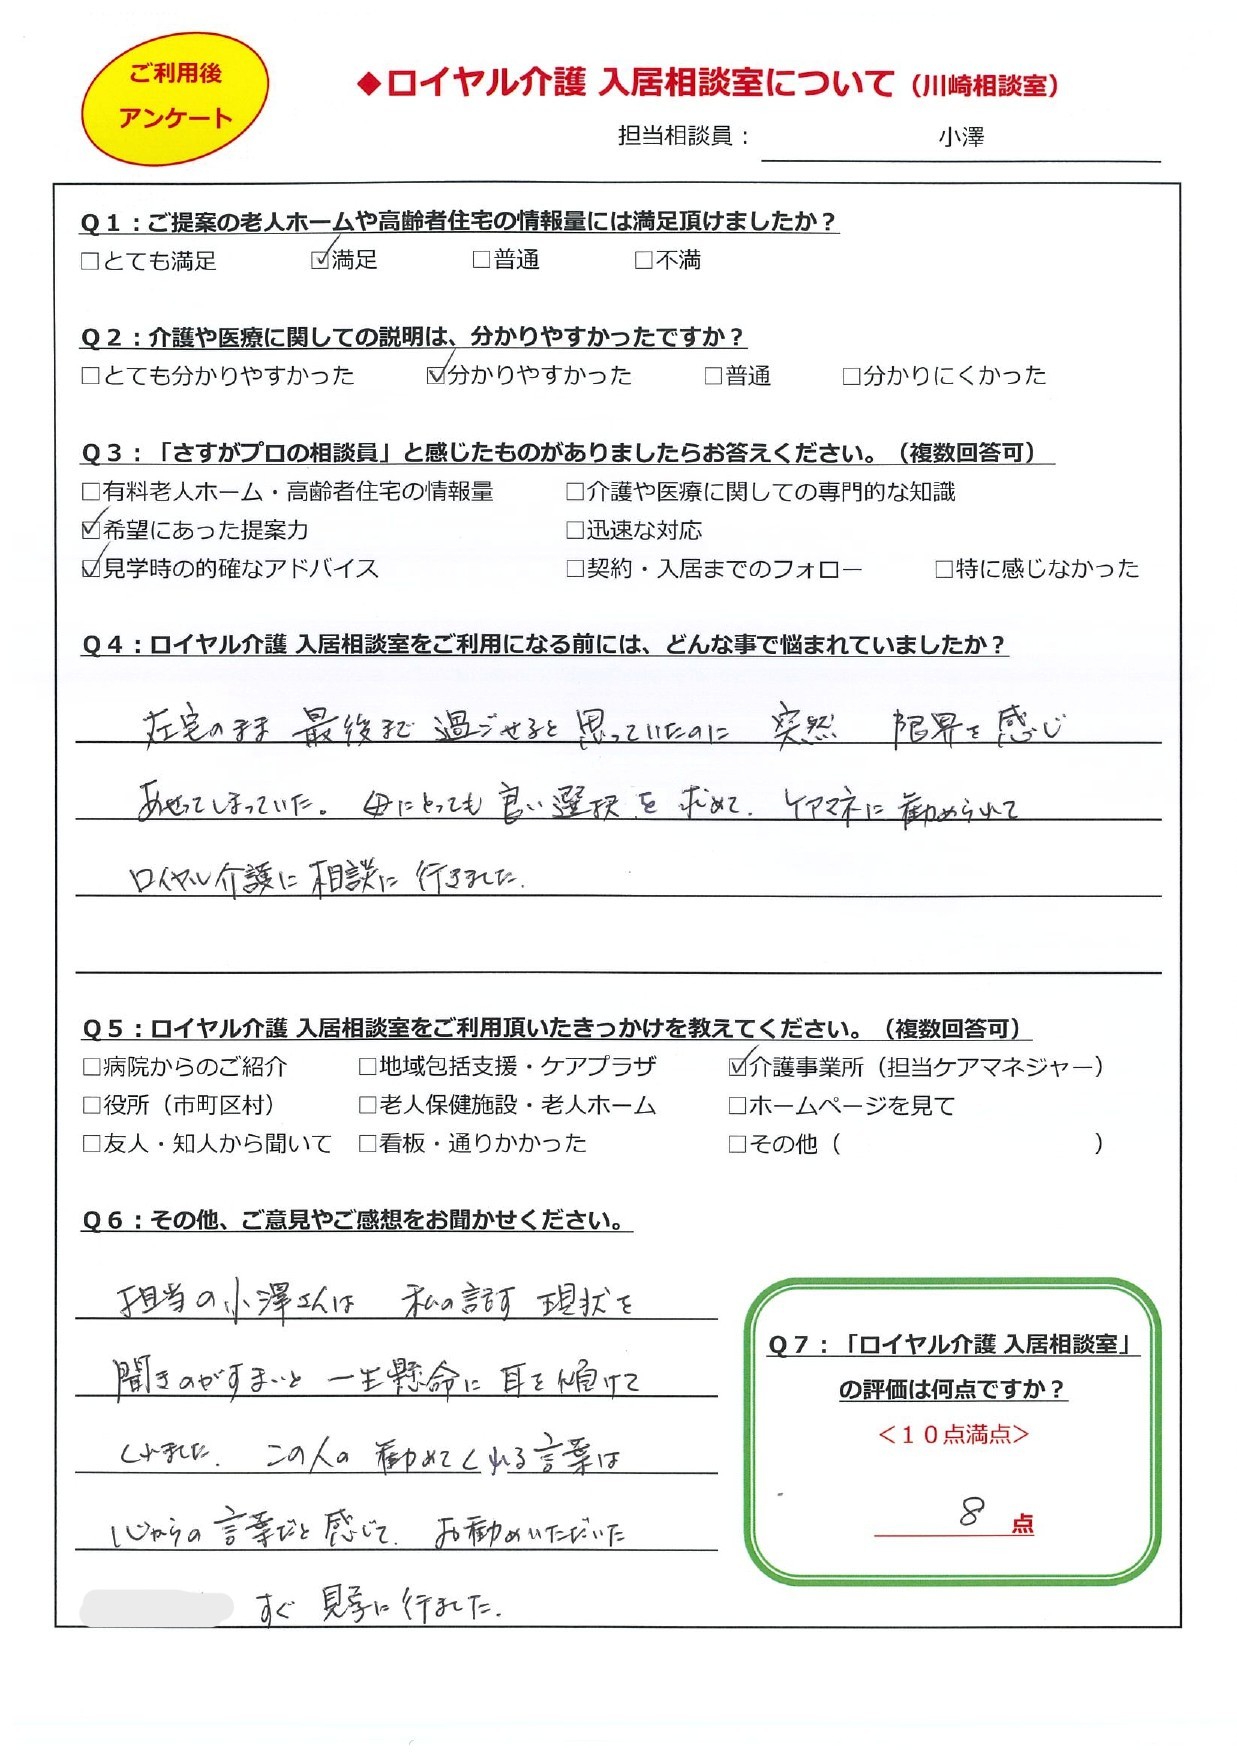 ご利用後
アンケート
◆ロイヤル介護 入居相談室について（川崎相談室）
担当相談員： 小澤
Ｑ１：ご提案の老人ホームや高齢者住宅の情報量には満足頂けましたか？
□とても満足 ☑満足 □普通 □不満
Ｑ２：介護や医療に関しての説明は、分かりやすかったですか？
□とても分かりやすかった ☑分かりやすかった □普通 □分かりにくかった
Ｑ３：「さすがプロの相談員」と感じたものがありましたらお答えください。（複数回答可）
□有料老人ホーム・高齢者住宅の情報量 □介護や医療に関しての専門的な知識
☑希望にあった提案力 □迅速な対応
☑見学時の的確なアドバイス □契約・入居までのフォロー □特に感じなかった
Ｑ４：ロイヤル介護 入居相談室をご利用になる前には、どんな事で悩まれていましたか？
在宅のまま 最後まで 過ごせると 思っていたのに 突然 限界を感じ
あせってしまっていた。母にとっても 良い選択を 求めて、ケアマネに 勧められて
ロイヤル介護に 相談に 行きました。
Ｑ５：ロイヤル介護 入居相談室をご利用頂いたきっかけを教えてください。（複数回答可）
□病院からのご紹介 □地域包括支援・ケアプラザ ☑介護事業所（担当ケアマネジャー）
□役所（市町区村） □老人保健施設・老人ホーム □ホームページを見て
□友人・知人から聞いて □看板・通りかかった □その他（ ）
Ｑ６：その他、ご意見やご感想をお聞かせください。
担当の小澤さんは 私の話す 現状を
聞きのがすまいと 一生懸命に 耳を傾けて
くれました。この人の 勧めてくれる言葉は
心からの 言葉だと 感じて、お勧めいただいた
すぐ 見学に行ました。
Ｑ７：「ロイヤル介護 入居相談室」
の評価は何点ですか？
＜１０点満点＞
8 点